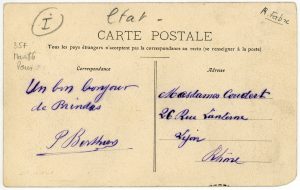 I
Etat -
CARTE POSTALE
Tous les pays étrangers n'acceptent pas la correspondance au verso (se renseigner à la poste)
Correspondance
Adresse
Un bon bonjour
de
P Berthier
Mesdames Coudert
26 Rue Lanterne
Lyon
Rhône